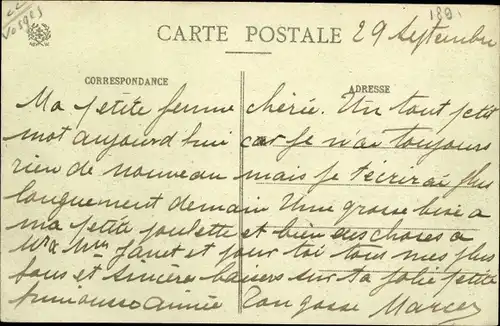 Vosges
189
CARTE POSTALE 29 Septembre
CORRESPONDANCE
ADRESSE
Ma petite femme chérie. Un tout petit
mot aujourd hui car je n'ai toujours
rien de nouveau mais je t'écrirai plus
longuement demain Une grosse bise a
ma petite poulette et bien des choses a
Mr & Mme Janet et pour toi tous mes plus
fous et sincères baisers sur ta jolie petite
frimousse aimée Ton gosse Marcel